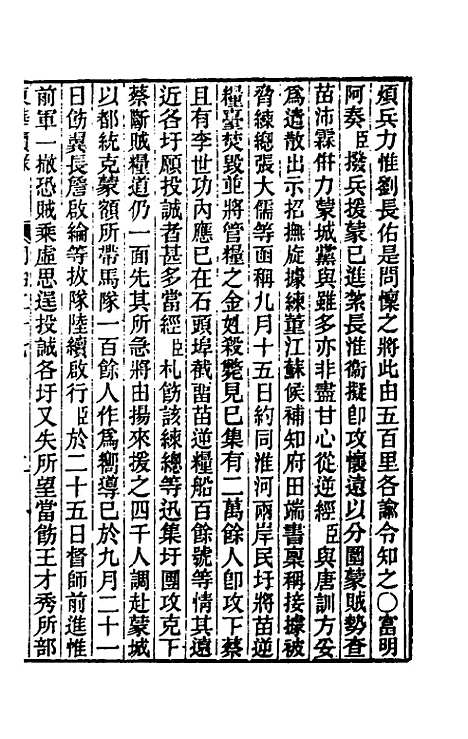 煩兵力惟劉長佑是問懍之將此由五百里各諭令知之○富明
阿奏臣撥兵援蒙已進紮長淮衞擬卽攻懷遠以分圍蒙賊勢查
苗沛霖併力蒙城黨與雖多亦非盡甘心從逆經臣與唐訓方妥
爲遣散出示招撫旋據練董江蘇候補知府田端書稟稱接據被
脅練總張大儒等函稱九月十五日約同淮河兩岸民圩將苗逆
糧臺焚毀並將管糧之金姓殺斃見已集有二萬餘人卽攻下蔡
且有李世功內應已在石頭埠截留苗逆糧船百餘號等情其遠
近各圩願投誠者甚多當經臣札飭該練總等迅集圩團攻克下
蔡斷賊糧道仍一面先其所急將由揚來援之四千人調赴蒙城
以都統克蒙額所帶馬隊一百餘人作爲嚮導已於九月二十一
日飭翼長詹啟綸等拔隊陸續啟行臣於二十五日督師前進惟
前軍一撤恐賊乘虛思逞投誠各圩又失所望當飭王才秀所部